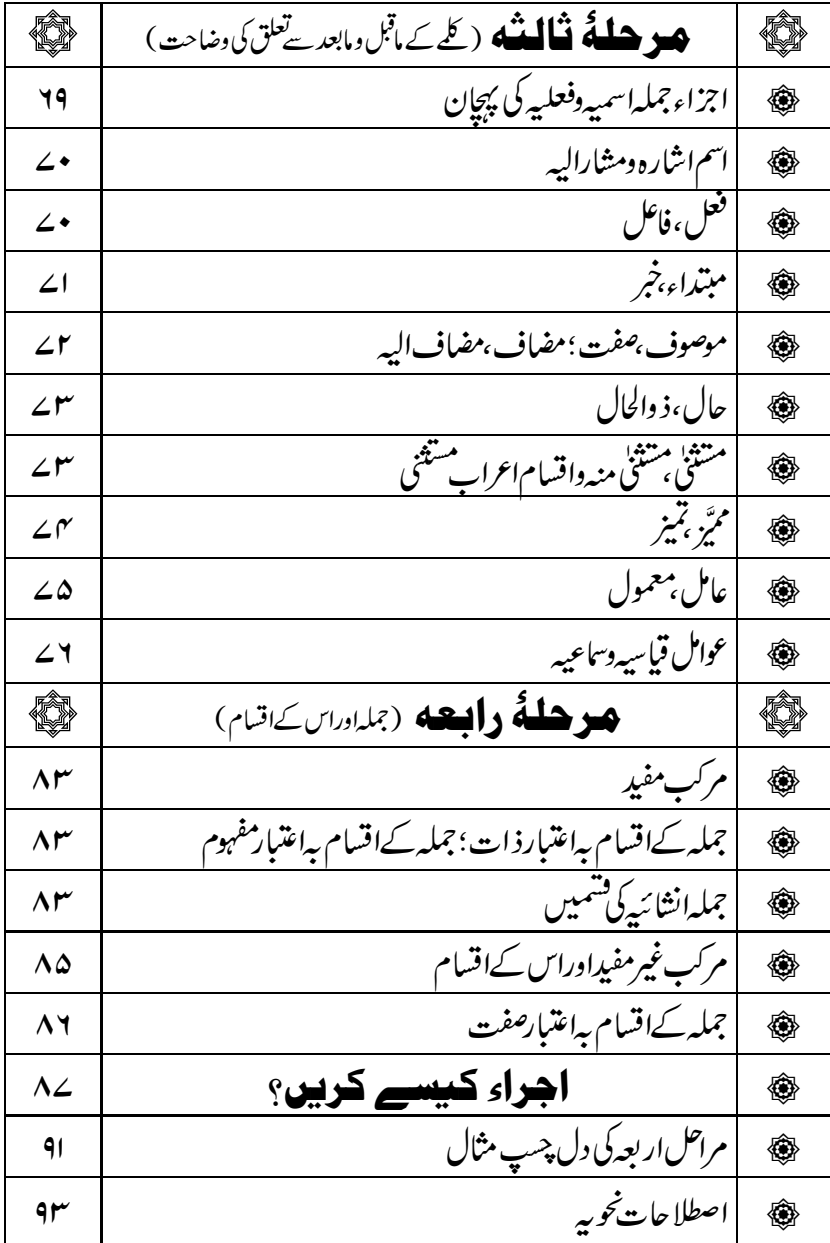 مرحلۂ ثالثہ (کلمے کے ماقبل و مابعد سے تعلق کی وضاحت)
اجزاء جملہ اسمیہ وفعلیہ کی پہچان ۶۹
اسم اشارہ ومشارالیہ ۷۰
فعل، فاعل ۷۰
مبتداء، خبر ۷۱
موصوف، صفت؛ مضاف، مضاف الیہ ۷۲
حال، ذوالحال ۷۳
مستثنیٰ، مستثنیٰ منہ واقسام اعراب مستثنی ۷۳
ممیَّز، تمیز ۷۴
عامل، معمول ۷۵
عوامل قیاسیہ وسماعیہ ۷۶
مرحلۂ رابعہ (جملہ اور اس کے اقسام)
مرکب مفید ۸۳
جملہ کے اقسام بہ اعتبار ذات؛ جملہ کے اقسام بہ اعتبار مفہوم ۸۳
جملہ انشائیہ کی قسمیں ۸۳
مرکب غیر مفید اور اس کے اقسام ۸۵
جملہ کے اقسام بہ اعتبار صفت ۸۶
اجراء کیسے کریں؟ ۸۷
مراحل اربعہ کی دل چسپ مثال ۹۱
اصطلاحات نحویہ ۹۳